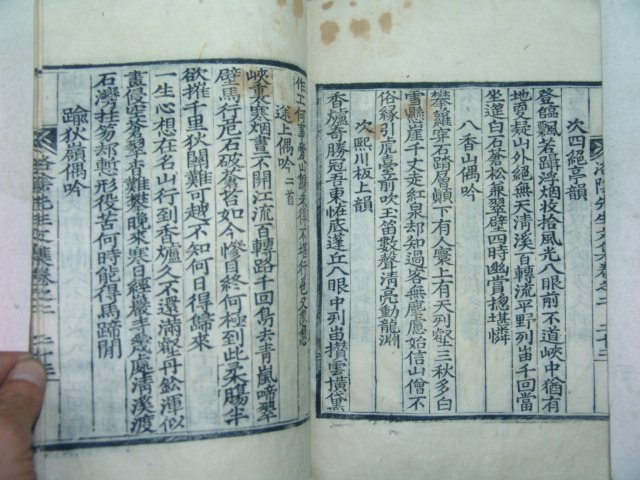 次四絕亭韻
登臨飄若躡浮烟收拾風光八眼前不道峽中猶有
地更疑山外絕無天清溪百轉流平野列岫千回當
坐邊白石蒼松兼翠壁四時幽賞摠堪憐
八香山偶吟
攀蘿寧石躋層顚下有人寰上有天列壑三秋多白
雪懸崖千丈走紅泉却知過客無塵慮始信山僧不
俗緣引虎臺前吹玉笛數聲淸亮動龍淵
次熙川板上韻
香爐奇勝冠吾東恠底蓬丘八眼中列岫攢雲橫黛
二十二
途上偶吟 二首
峽裏寒烟畫不開江流百轉路千回鳥去靑嵐啼翠
壁馬行危石破蒼苔如今慘目終何極到此柔膓半
欲摧千里狄關難可越不知何日得歸來
一生心想在名山行到香爐久不還滿壑丹鉛渾似
畫侵坐蒼翠杳難攀晚來寒日經巖手處處淸溪渡
石灣桂笏却慙形役苦何時能得馬蹄閒
踰狄嶺偶吟
先生文集卷之二